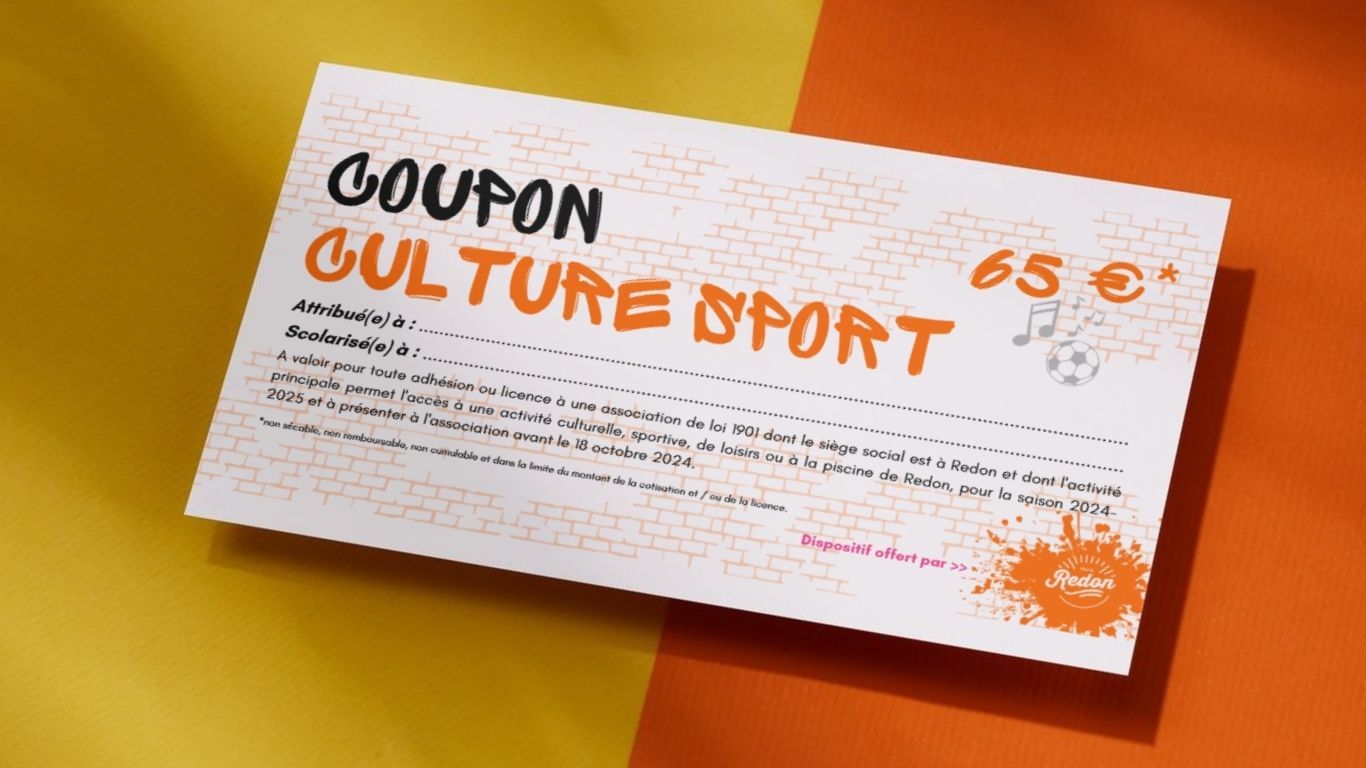 COUPON
CULTURE SPORT
65 €*
Attribué(e) à :
Scolarisé(e) à :
A valoir pour toute adhésion ou licence à une association de loi 1901 dont le siège social est à Redon et dont l'activité
principale permet l'accès à une activité culturelle, sportive, de loisirs ou à la piscine de Redon, pour la saison 2024-
2025 et à présenter à l'association avant le 18 octobre 2024.
*non sécable, non remboursable, non cumulable et dans la limite du montant de la cotisation et / ou de la licence.
Dispositif offert par >>
Redon